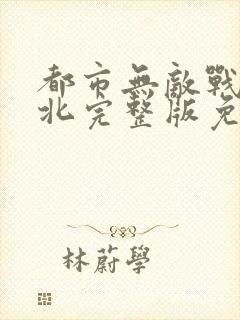 都市無敵戰
北完整版免
林蔚學